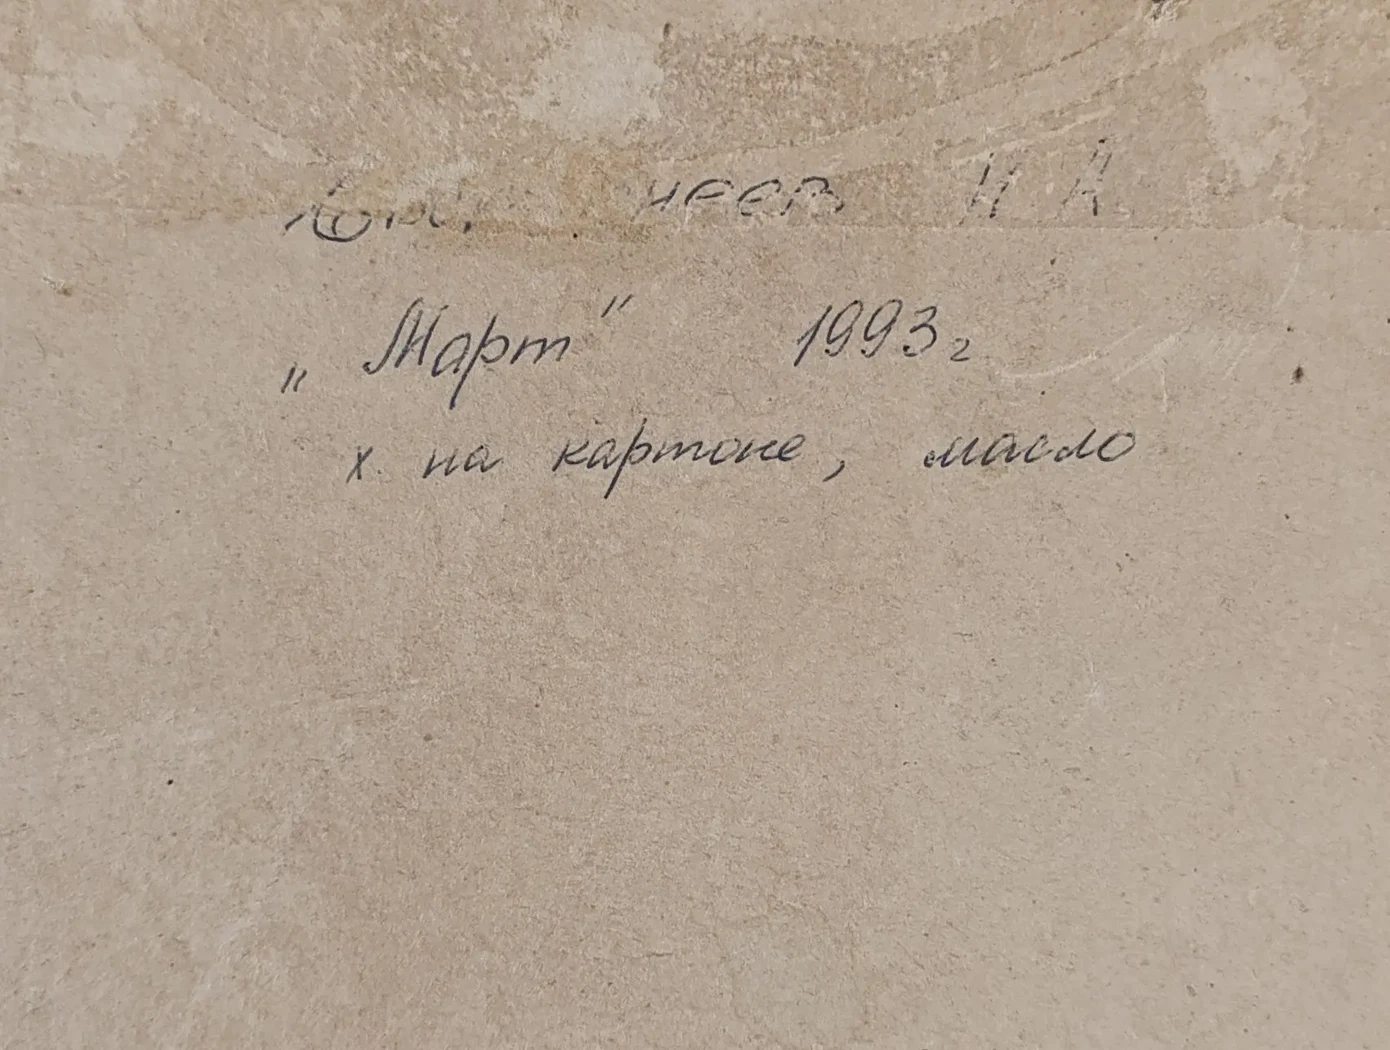 Н. А.
„Март" 1993 г
х. на картоне, масло